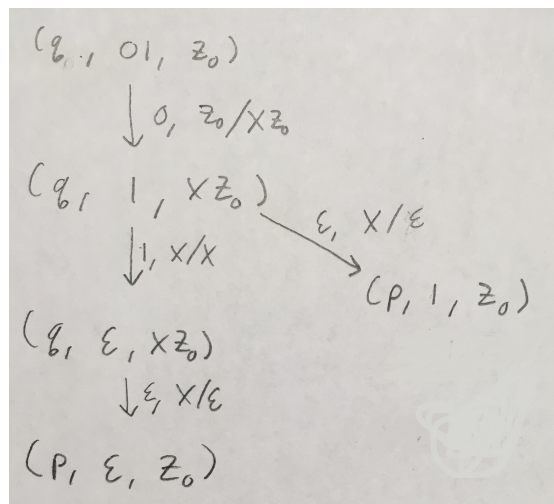 (q, 01, z₀)
0, z₀/xz₀
(q, 1, xz₀)
ε, x/ε
1, x/x
(p, 1, z₀)
(q, ε, xz₀)
ε, x/ε
(p, ε, z₀)